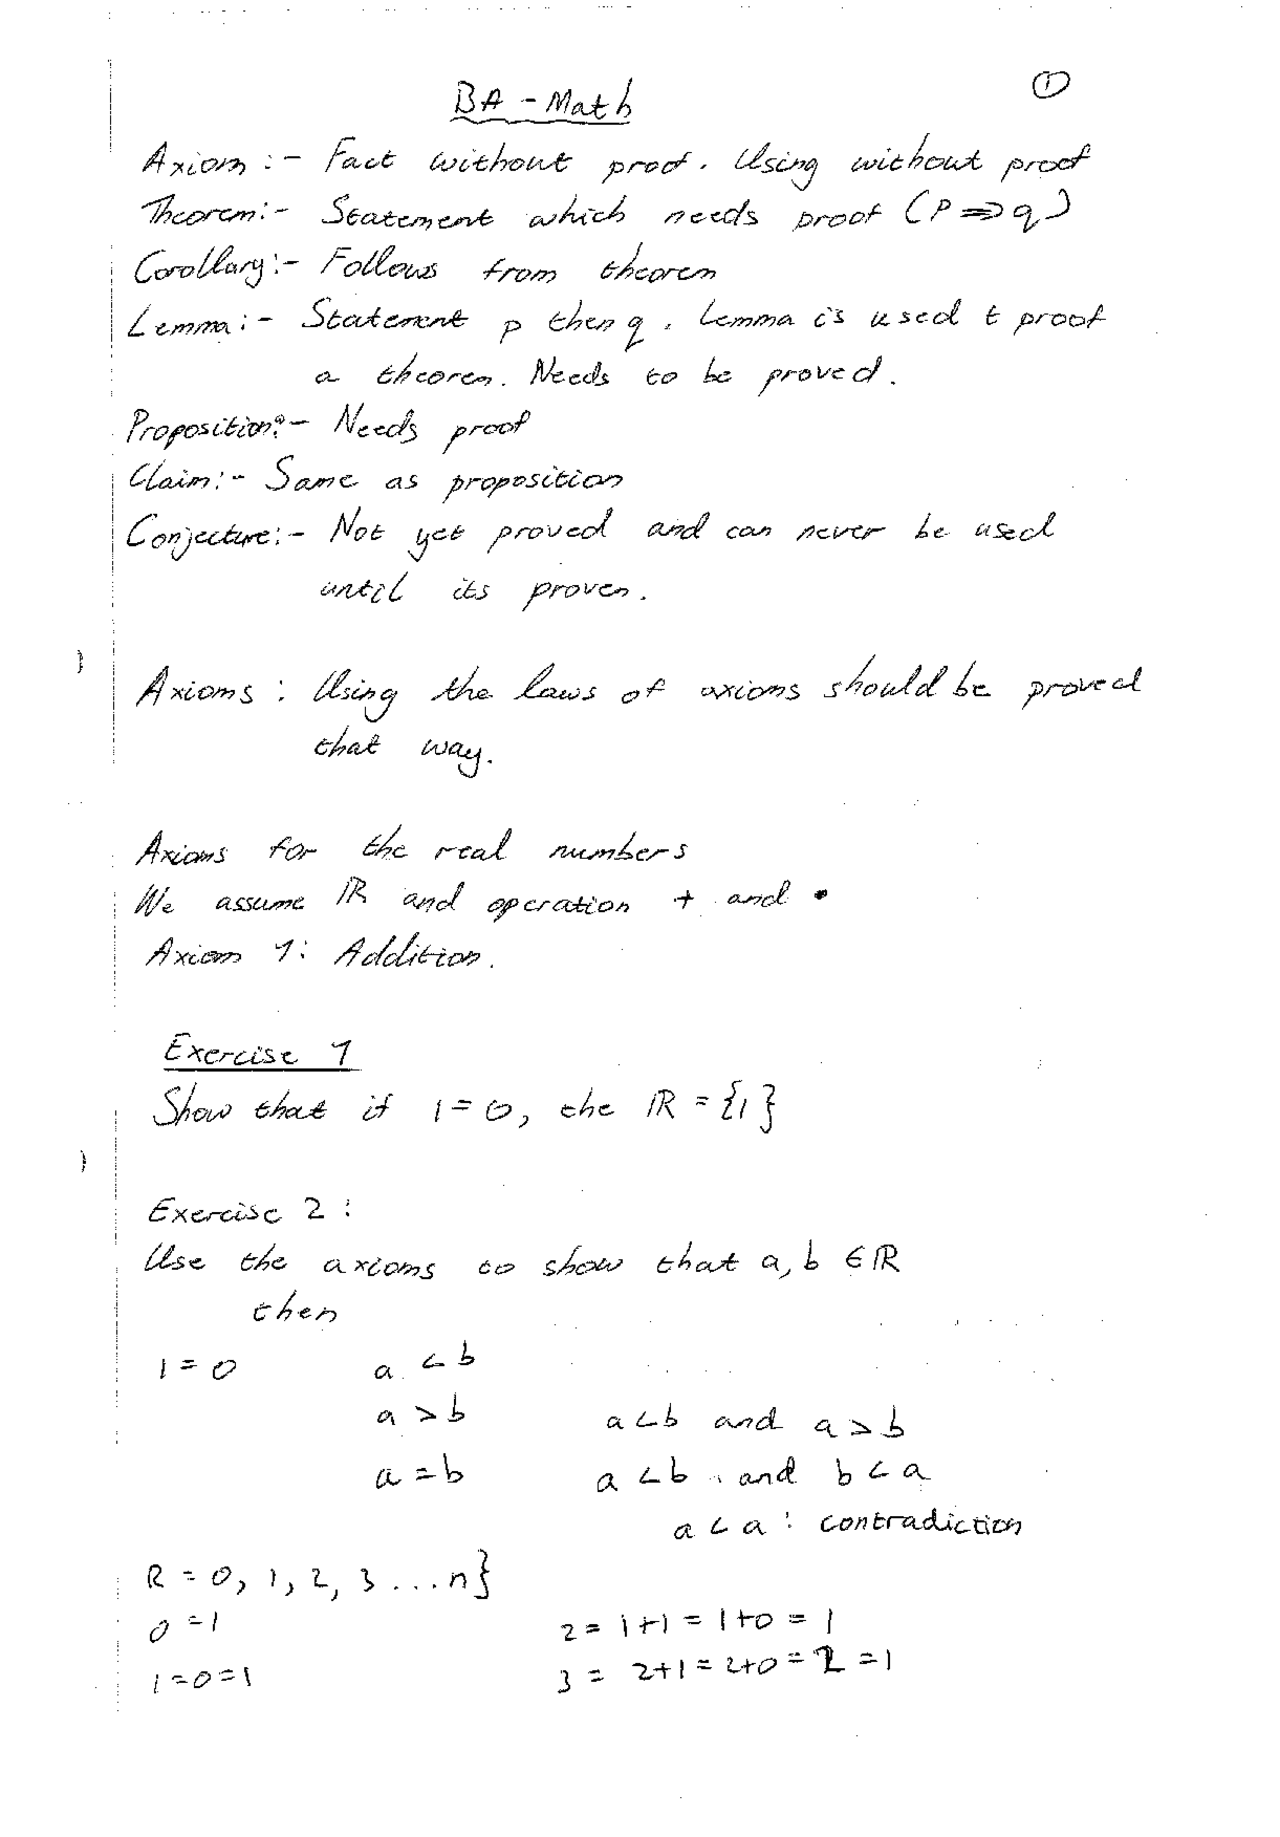 ①
BA - Math
Axiom :- Fact without proof. Using without proof
Theorem :- Statement which needs proof (P => q)
Corollary :- Follows from theorem
Lemma :- Statement p then q. Lemma is used t proof
a theorem. Needs to be proved.
Proposition :- Needs proof
Claim :- Same as proposition
Conjecture :- Not yet proved and can never be used
until its proven.
Axioms : Using the laws of axioms should be proved
that way.
Axioms for the real numbers
We assume ℝ and operation + and •
Axiom 1: Addition.
Exercise 1
Show that if 1 = 0, the ℝ = {1}
Exercise 2 :
Use the axioms to show that a, b ∈ ℝ
then
1 = 0 a < b
a > b a < b and a > b
a = b a < b and b < a
a < a : contradiction
R = 0, 1, 2, 3 ... n}
0 = 1 2 = 1+1 = 1+0 = 1
1 = 0 = 1 3 = 2+1 = 2+0 = 2 = 1